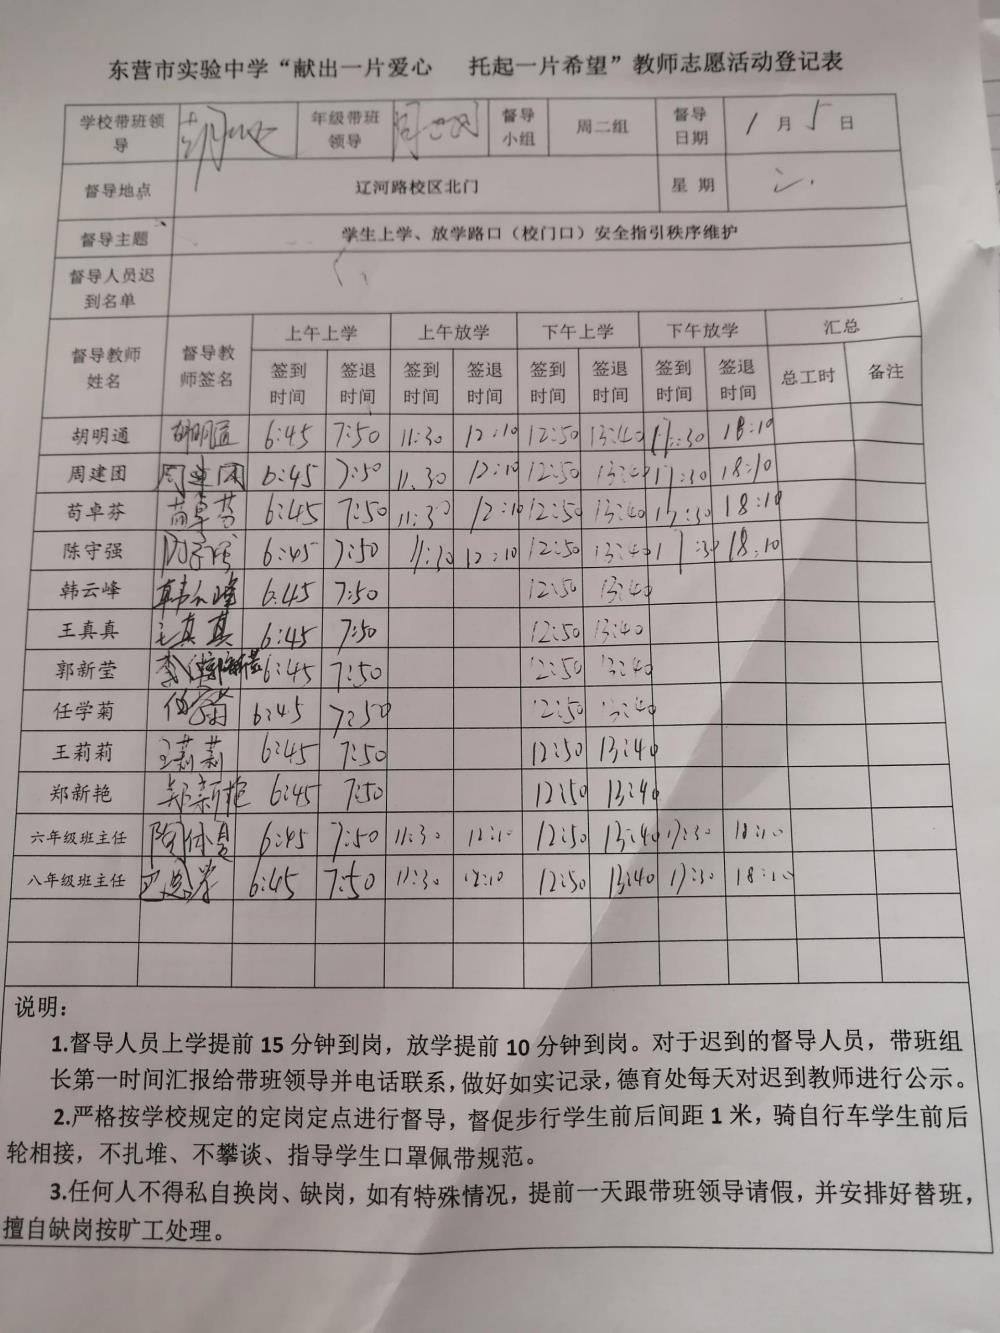 东营市实验中学“献出一片爱心 托起一片希望”教师志愿活动登记表
学校带班领导 年级带班领导 督导小组 周二组 督导日期 1月5日
督导地点 辽河路校区北门 星期 二
督导主题 学生上学、放学路口（校门口）安全指引秩序维护
督导人员迟到名单
督导教师姓名 督导教师签名 上午上学 上午放学 下午上学 下午放学 汇总
签到时间 签退时间 签到时间 签退时间 签到时间 签退时间 签到时间 签退时间 总工时 备注
胡明通 胡明通 6:45 7:50 11:30 12:10 12:50 13:40 17:30 18:10
周建团 周建团 6:45 7:50 11:30 12:10 12:50 13:40 17:30 18:10
苟卓芬 苟卓芬 6:45 7:50 11:30 12:10 12:50 13:40 17:30 18:10
陈守强 6:45 7:50 11:30 12:10 12:50 13:40 17:30 18:10
韩云峰 韩云峰 6:45 7:50 12:50 13:40
王真真 王真真 6:45 7:50 12:50 13:40
郭新莹 6:45 7:50 12:50 13:40
任学菊 6:45 7:50 12:50 13:40
王莉莉 王莉莉 6:45 7:50 12:50 13:40
郑新艳 郑新艳 6:45 7:50 12:50 13:40
六年级班主任 6:45 7:50 11:30 12:10 12:50 13:40 17:30 18:10
八年级班主任 6:45 7:50 11:30 12:10 12:50 13:40 17:30 18:10
说明：
1.督导人员上学提前 15 分钟到岗，放学提前 10 分钟到岗。对于迟到的督导人员，带班组
长第一时间汇报给带班领导并电话联系，做好如实记录，德育处每天对迟到教师进行公示。
2.严格按学校规定的定岗定点进行督导，督促步行学生前后间距 1 米，骑自行车学生前后
轮相接，不扎堆、不攀谈、指导学生口罩佩带规范。
3.任何人不得私自换岗、缺岗，如有特殊情况，提前一天跟带班领导请假，并安排好替班，
擅自缺岗按旷工处理。